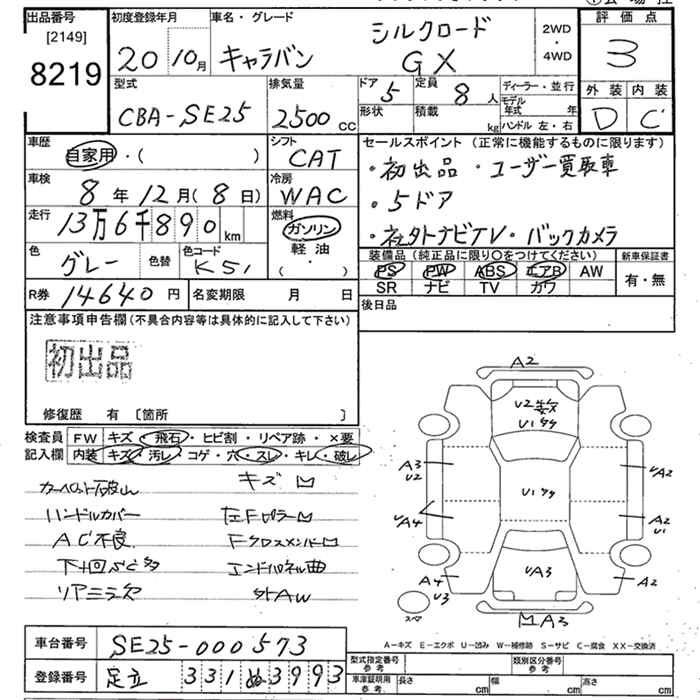 出品番号 [2149] 8219
初度登録年月 20 10月
車名・グレード キャラバン シルクロード GX
2WD・4WD
評価点 3
外装 D 内装 C
型式 CBA-SE25
排気量 2500cc
ドア 5 定員 8人
形状 積載 kg
ディーラー・並行
モデル年式 年
ハンドル 左・右
車歴 自家用・( )
シフト CAT
車検 8年12月(8日)
冷房 WAC
走行 13万6千890km
燃料 ガソリン 軽油 ( ・ )
色 グレー 色替
色コード K51
R券 14640円
名変期限 月 日
セールスポイント (正常に機能するものに限ります)
・初出品 ・ユーザー買取車
・5ドア
・社外ナビTV ・バックカメラ
装備品(純正品に限り○をつけてください)
PS PW ABS エアB AW
SR ナビ TV カワ
新車保証書 有・無
後日品
注意事項申告欄(不具合内容等は具体的に記入して下さい)
初出品
修復歴 有 〔箇所 〕
検査員記入欄
FW キズ・飛石・ヒビ割・リペア跡・×要
内装 キズ・汚レ・コゲ・穴・スレ・キレ・破レ
カーペット破 キズ凹
ハンドルカバー 左Fピラー凹
AC不良 Fクロスメンバー凹
下廻サビ多 エンドパネル曲
リアミラー欠 外AW
A2
U2
U1
A3
U2
A4
U1
A2
A2
U1
A4
U3
A3
A2
スペア
凹A3
A-キズ E-エクボ U-凹み W-補修跡 S-サビ C-腐食 XX-交換済
車台番号 SE25-000573
登録番号 足立 331 ぬ 3993
型式指定番号 参考
類別区分番号 参考
車庫証明用 参考 長さ cm 幅 cm 高さ cm